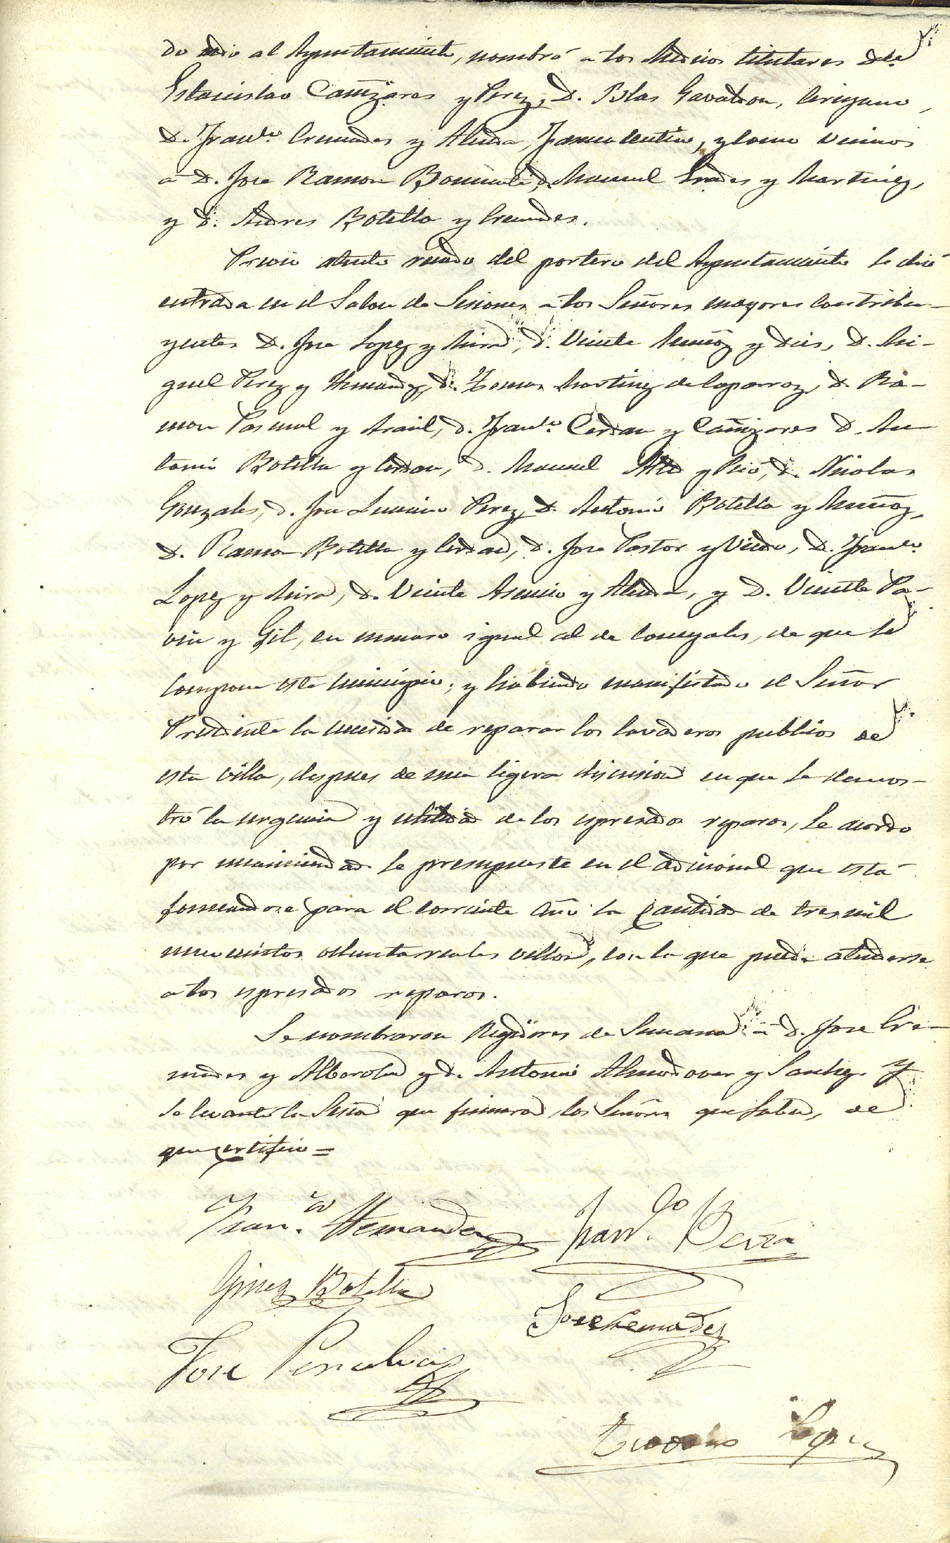 do dio al Ayuntamiento, nombró a los Medicos titulares de
Estanislao Cañizares y Perez, D. Blas Gavaldon, Cirujano,
D. Franco. Cremades y Alenda, Farmaceutico, y como vecinos
a D. Jose Ramon Bonmati, D. Manuel y Martinez,
y D. Andres Botella y Cremades.
Previo atento recado del portero del Ayuntamiento se dió
entrada en el Salon de Sesiones a los Señores mayores contribu-
yentes D. Jose Lopez y Mira, D. Vicente Muñoz y D. Mi-
guel Perez y Hernandez, D. Tomas Martinez de D. Ra-
mon Pascual y D. Franco. Cerdan y Cañizares D. An-
tonio Botella y Cerdan, D. Manuel y Picó, D. Nicolas
Gonzales, D. Jose Perez, D. Antonio Botella y Muñoz,
D. Ramon Botella y Cerdan, D. Jose Pastor y D. Franco.
Lopez y Mira, D. Vicente Asencio y Alenda, y D. Vicente Pa-
y Gil, en numero igual al de concejales, de que se
compone este municipio; y habiendo manifestado el Señor
Presidente la necesidad de reparar los lavaderos publicos de
esta villa, despues de una ligera discusion en que se demos-
tró la urgencia y utilidad de los espresados reparos, se acordo
por unanimidad se presupueste en el adicional que está
formandose para el corriente año la cantidad de tres mil
nuevecientos ochenta reales vellon, con la que puede atenderse
a los espresados reparos.
Se nombraron Regidores de Semana a D. Jose Cre-
mades y Alberola y D. Antonio Almodovar y Sanchez. Y
se levantó la Sesion que firmaron los Señores que saben, de
que certifico =
Franco. Hernandez Franco. Beviá
Gines Botella
Jose Cremades
Jose Penalva
Teodoro Lopez